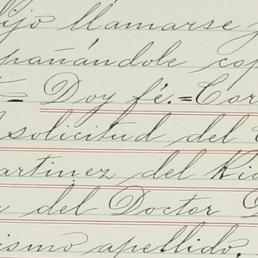 ijo llamarse
pañándole cop
Doy fé.=Cor
solicitud del
artinez del Rio
del Doctor D
ismo apellido.